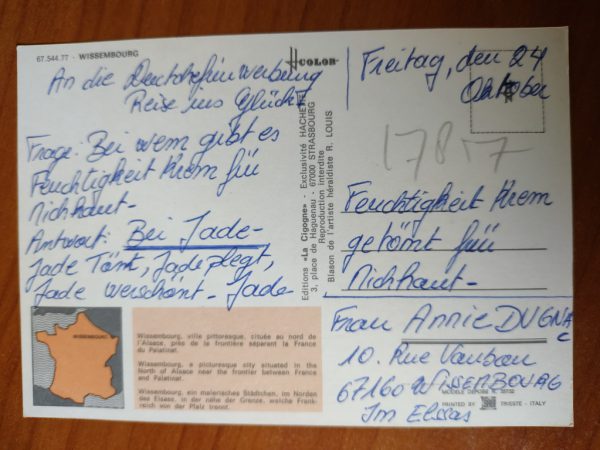 67.544.77 - WISSEMBOURG
COLOR
An die
Reise ins Glück
Frage: Bei wem gibt es
Feuchtigkeit Krem für
Antwort: Bei Jade-
Jade Tönt, Jade plegt,
Jade verschönt - Jade
Editions «La Cigogne» - Exclusivité HACHETTE
3, place de Haguenau - 67000 STRASBOURG
Reproduction interdite
Blason de l'artiste héraldiste R. LOUIS
Freitag, den 24
Oktober
17817
Feuchtigkeit Krem
getömt für
Frau ANNIE DUGNAC
10. Rue Vauban
67160 WISSEMBOURG
Im Elsass
WISSEMBOURG
Wissembourg, ville pittoresque, située au nord de
l'Alsace, près de la frontière séparant la France
du Palatinat.
Wissembourg, a picturesque city situated in the
North of Alsace near the frontier between France
and Palatinat.
Wissembourg, ein malerisches Städtchen, im Norden
des Elsass, in der nähe der Grenze, welche Frank-
reich von der Pfalz trennt.
MODELE DEPOSE
PRINTED BY TRIESTE - ITALY